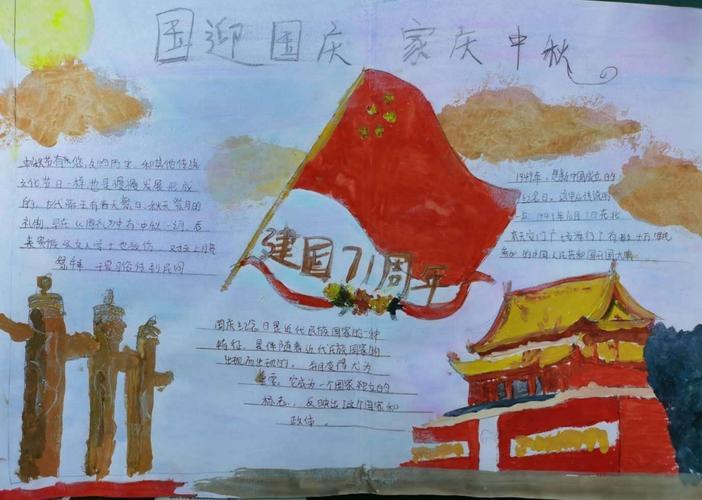 国迎国庆 家庆中秋
中秋节有悠久的历史，和其他传统
文化节日一样也是慢慢发展形成
的，古代帝王有春天祭日，秋天祭月的
礼制，早在《周礼》中有中秋一词，后
来贵族文人学士也效仿
习俗传到民间
1949年，
一点，1949年10月1日在北
京天安门广场举行了有 十万军民
参加的中国人民共和国开国大典
建国71周年
国庆纪念日是近代民族国家的一种
特征，是伴随着近代民族国家的
出现而出现的，和变得尤为
重要，它成为一个国家独立的
标志，反映出了这个国家和
政体。